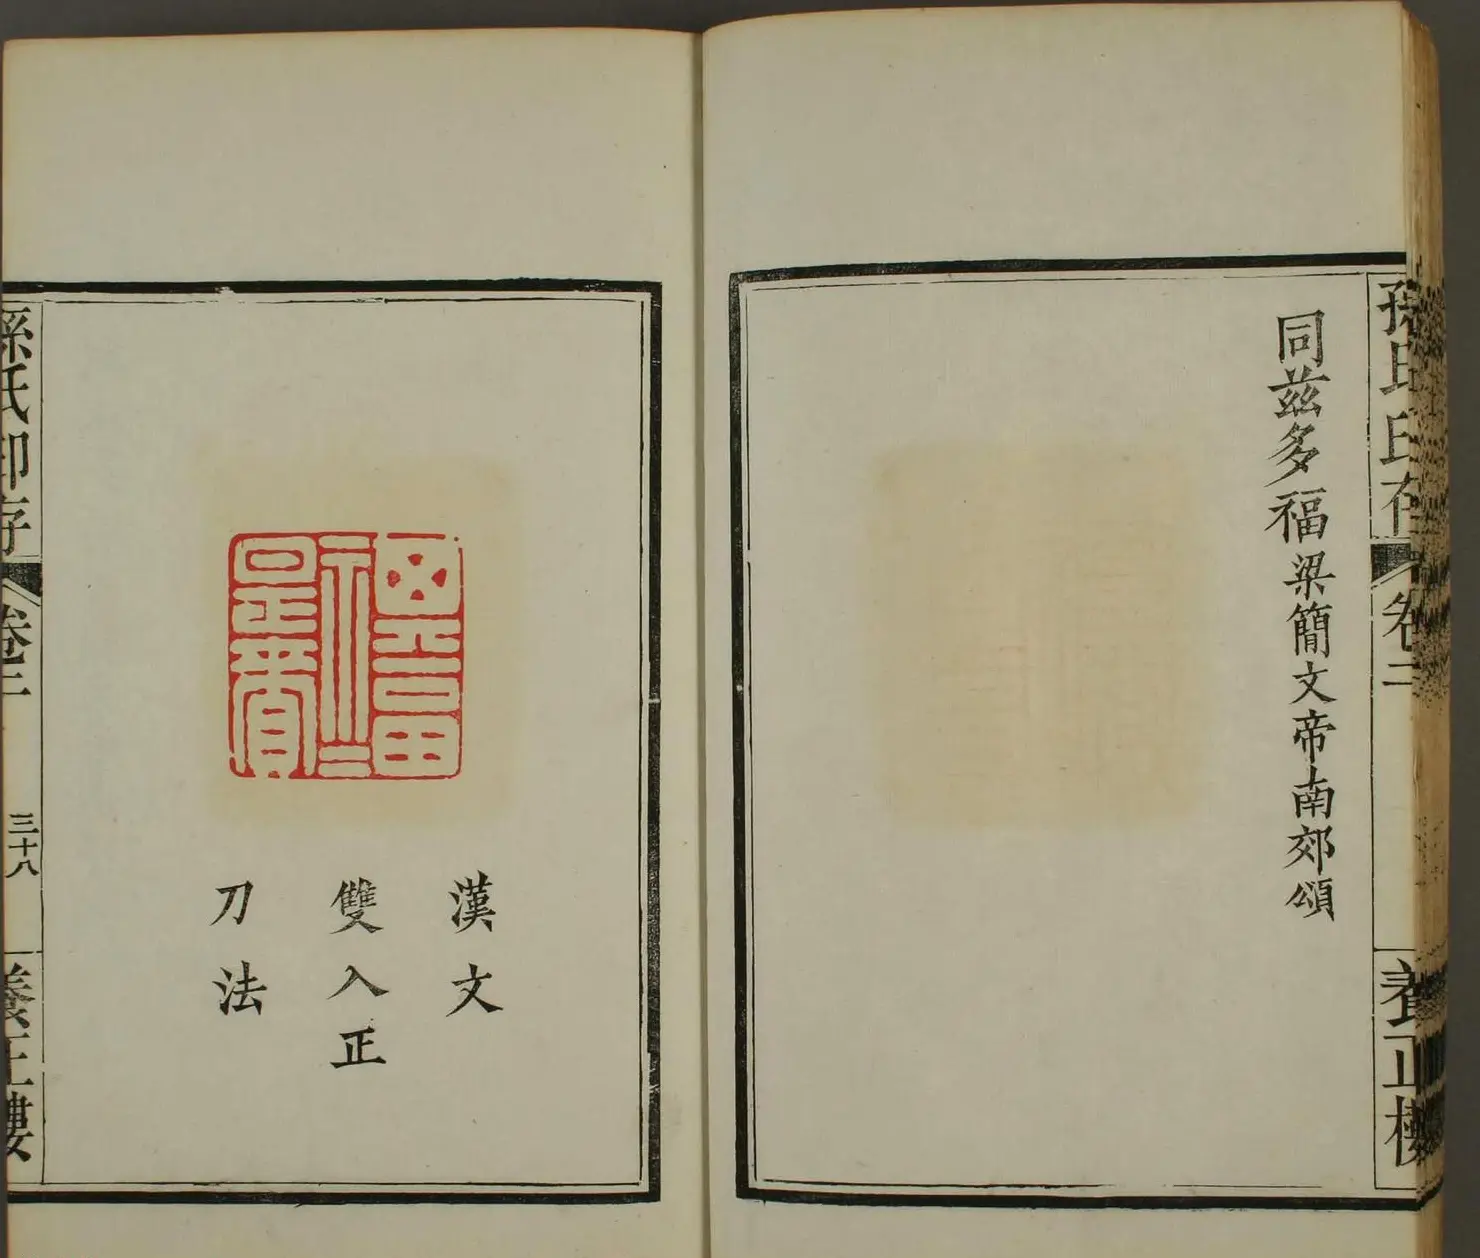 孫氏印存
卷三
養正樓
同茲多福梁簡文帝南郊頌
漢文
雙入正
刀法
孫氏印存
卷三
三十八
養正樓